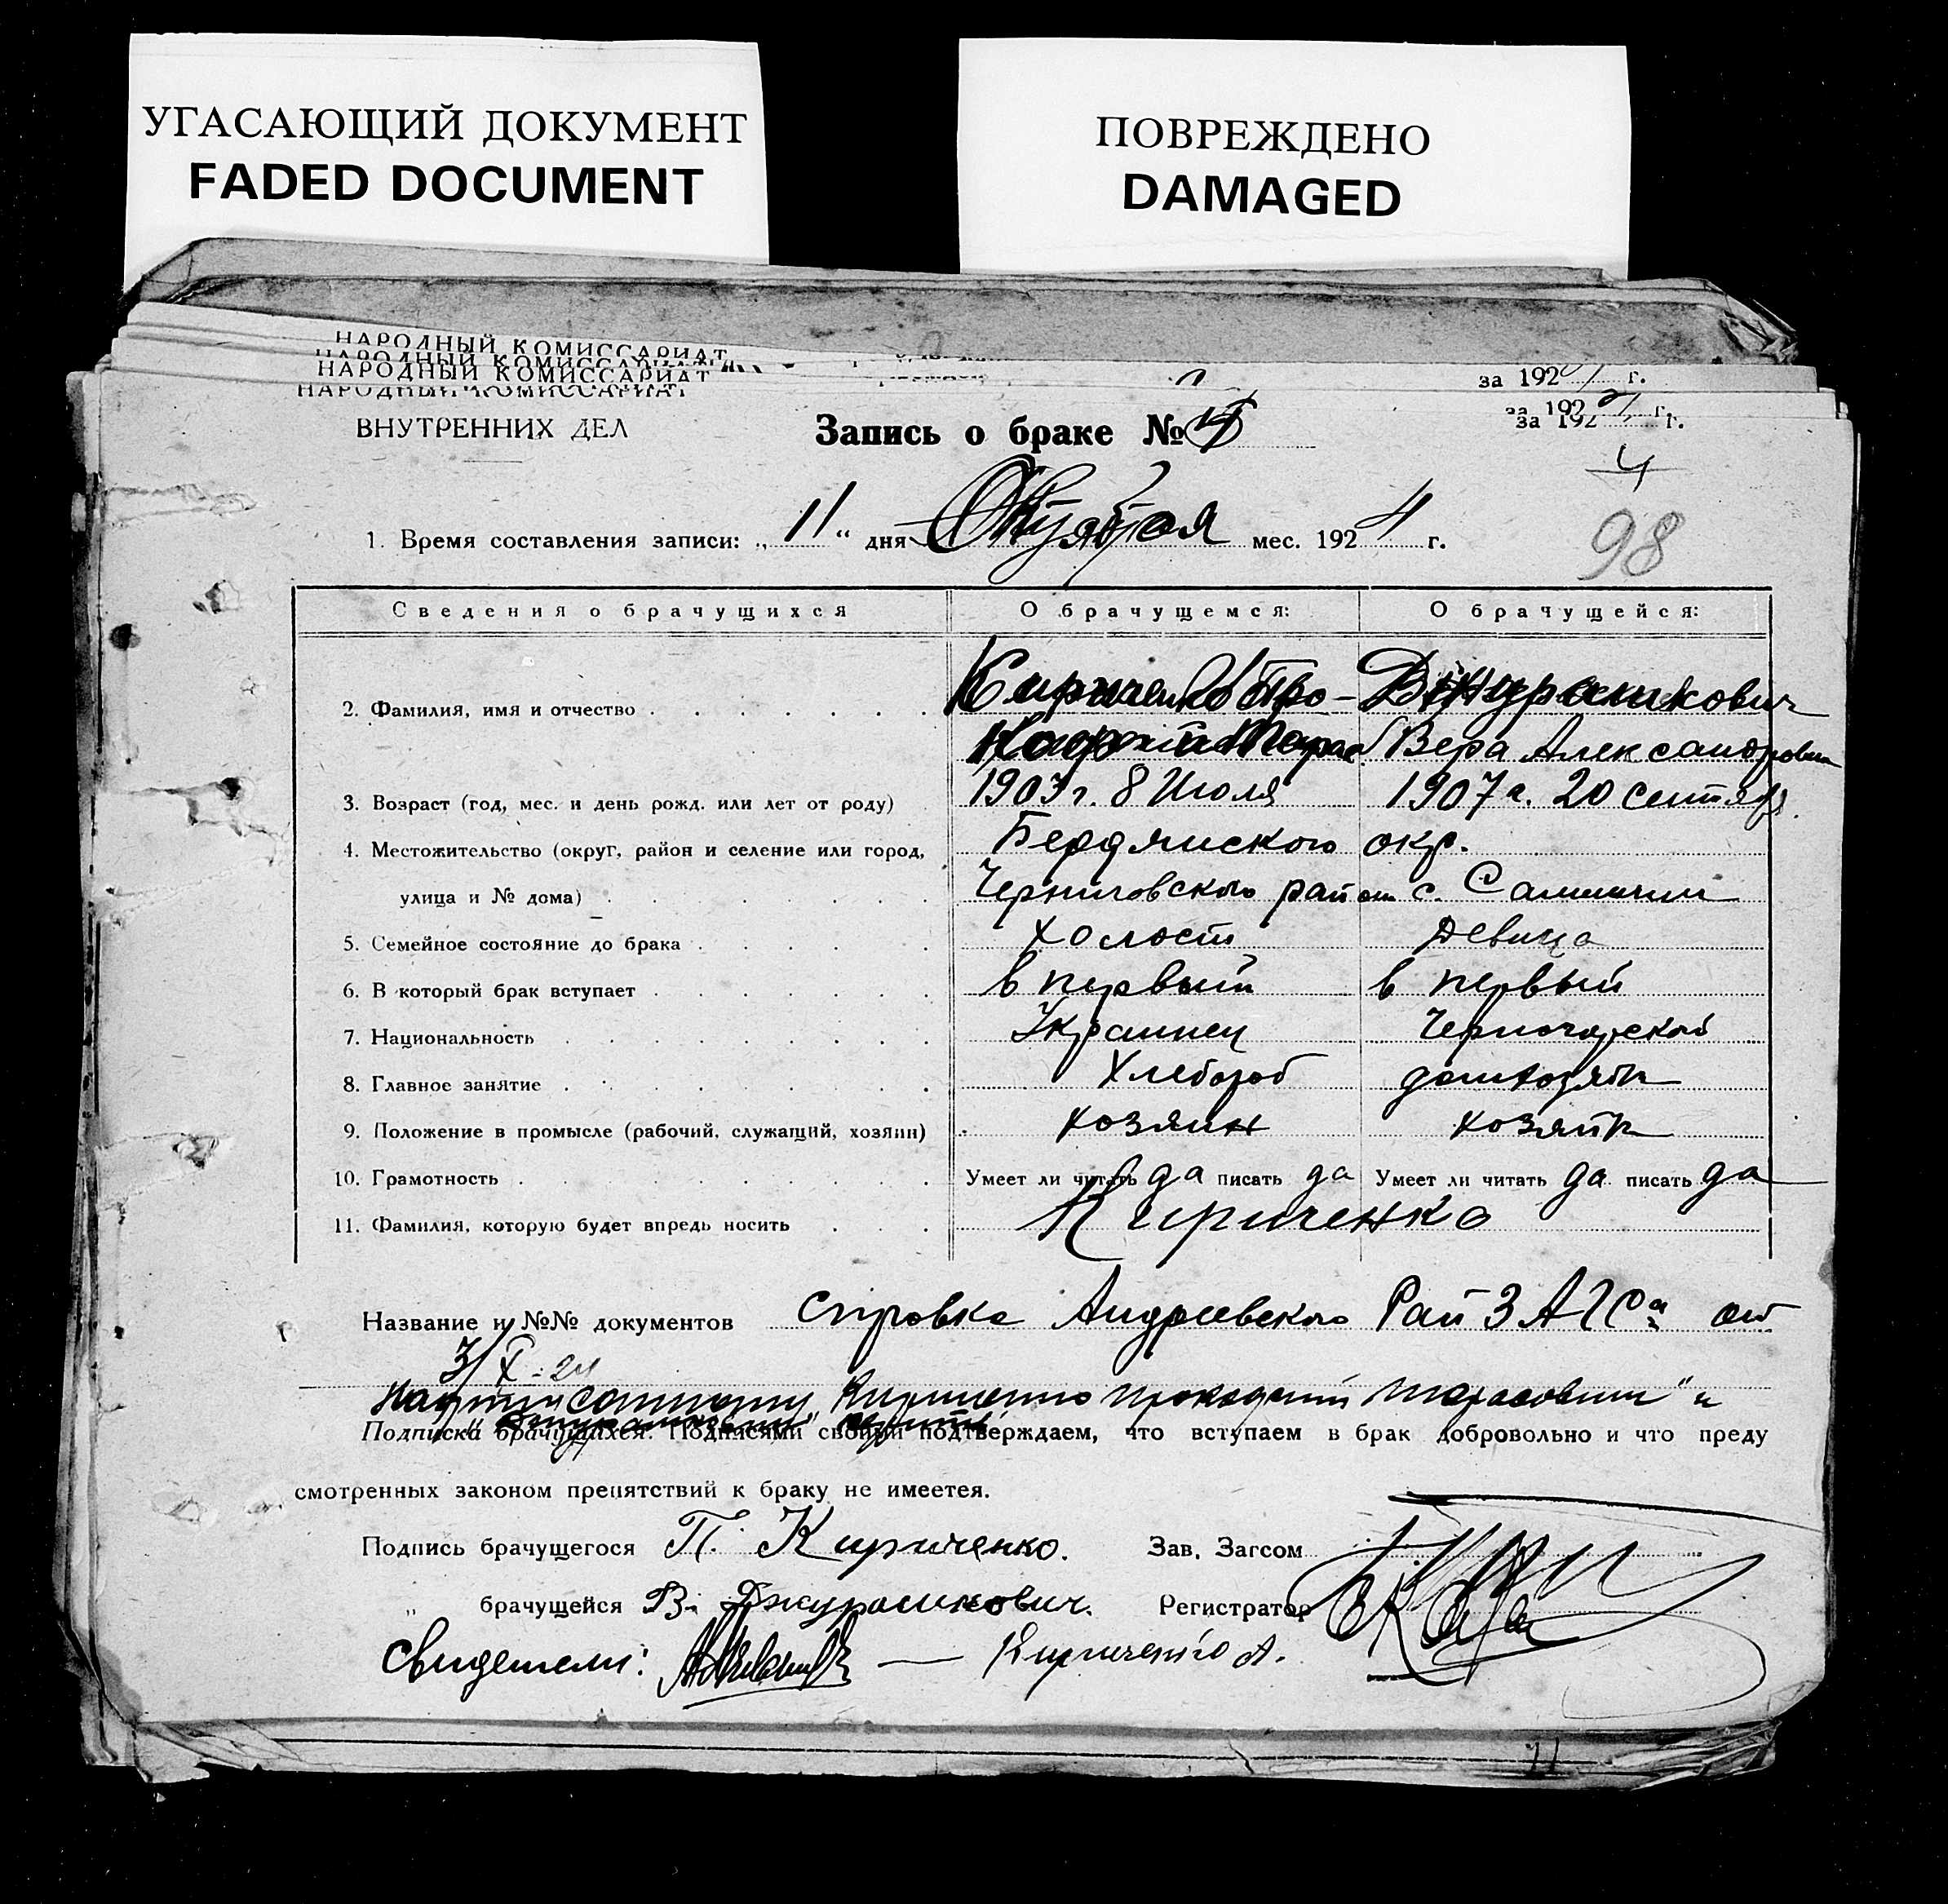 УГАСАЮЩИЙ ДОКУМЕНТ
FADED DOCUMENT
ПОВРЕЖДЕНО
DAMAGED
НАРОДНЫЙ КОМИССАРИАТ
НАРОДНЫЙ КОМИССАРИАТ
НАРОДНЫЙ КОМИССАРИАТ
за 192 г.
НАРОДНЫЙ КОМИССАРИАТ
за 192 г.
ВНУТРЕННИХ ДЕЛ
Запись о браке №
за 192 г.
4
98
1. Время составления записи: „11“ дня Октября мес. 1924 г.
Сведения о брачущихся О брачущемся: О брачущейся:
2. Фамилия, имя и отчество Кириченко Про- Джурашкович
Вера Александровн
3. Возраст (год, мес. и день рожд. или лет от роду) 1903 г. 8 Июля 1907 г. 20 сентября
4. Местожительство (округ, район и селение или город, Бердянского окр.
улица и № дома) Черниговского район с.
5. Семейное состояние до брака холост девица
6. В который брак вступает в первый в первый
7. Национальность Украинец Черногорской
8. Главное занятие Хлебороб домхозяйк
9. Положение в промысле (рабочий, служащий, хозяин) хозяин хозяйк
10. Грамотность Умеет ли читать да писать да Умеет ли читать да писать да
11. Фамилия, которую будет впредь носить Кириченко
Название и №№ документов справка Андреевского РайЗАГСа от
3/X-24
Кириченко Тарасович" и
Подписка брачущихся. Подписями своими подтверждаем, что вступаем в брак добровольно и что преду
смотренных законом препятствий к браку не имеется.
Подпись брачущегося П. Кириченко. Зав. Загсом
„ брачущейся В. Джурашкович. Регистратор
свидетели: — Кириченко А.